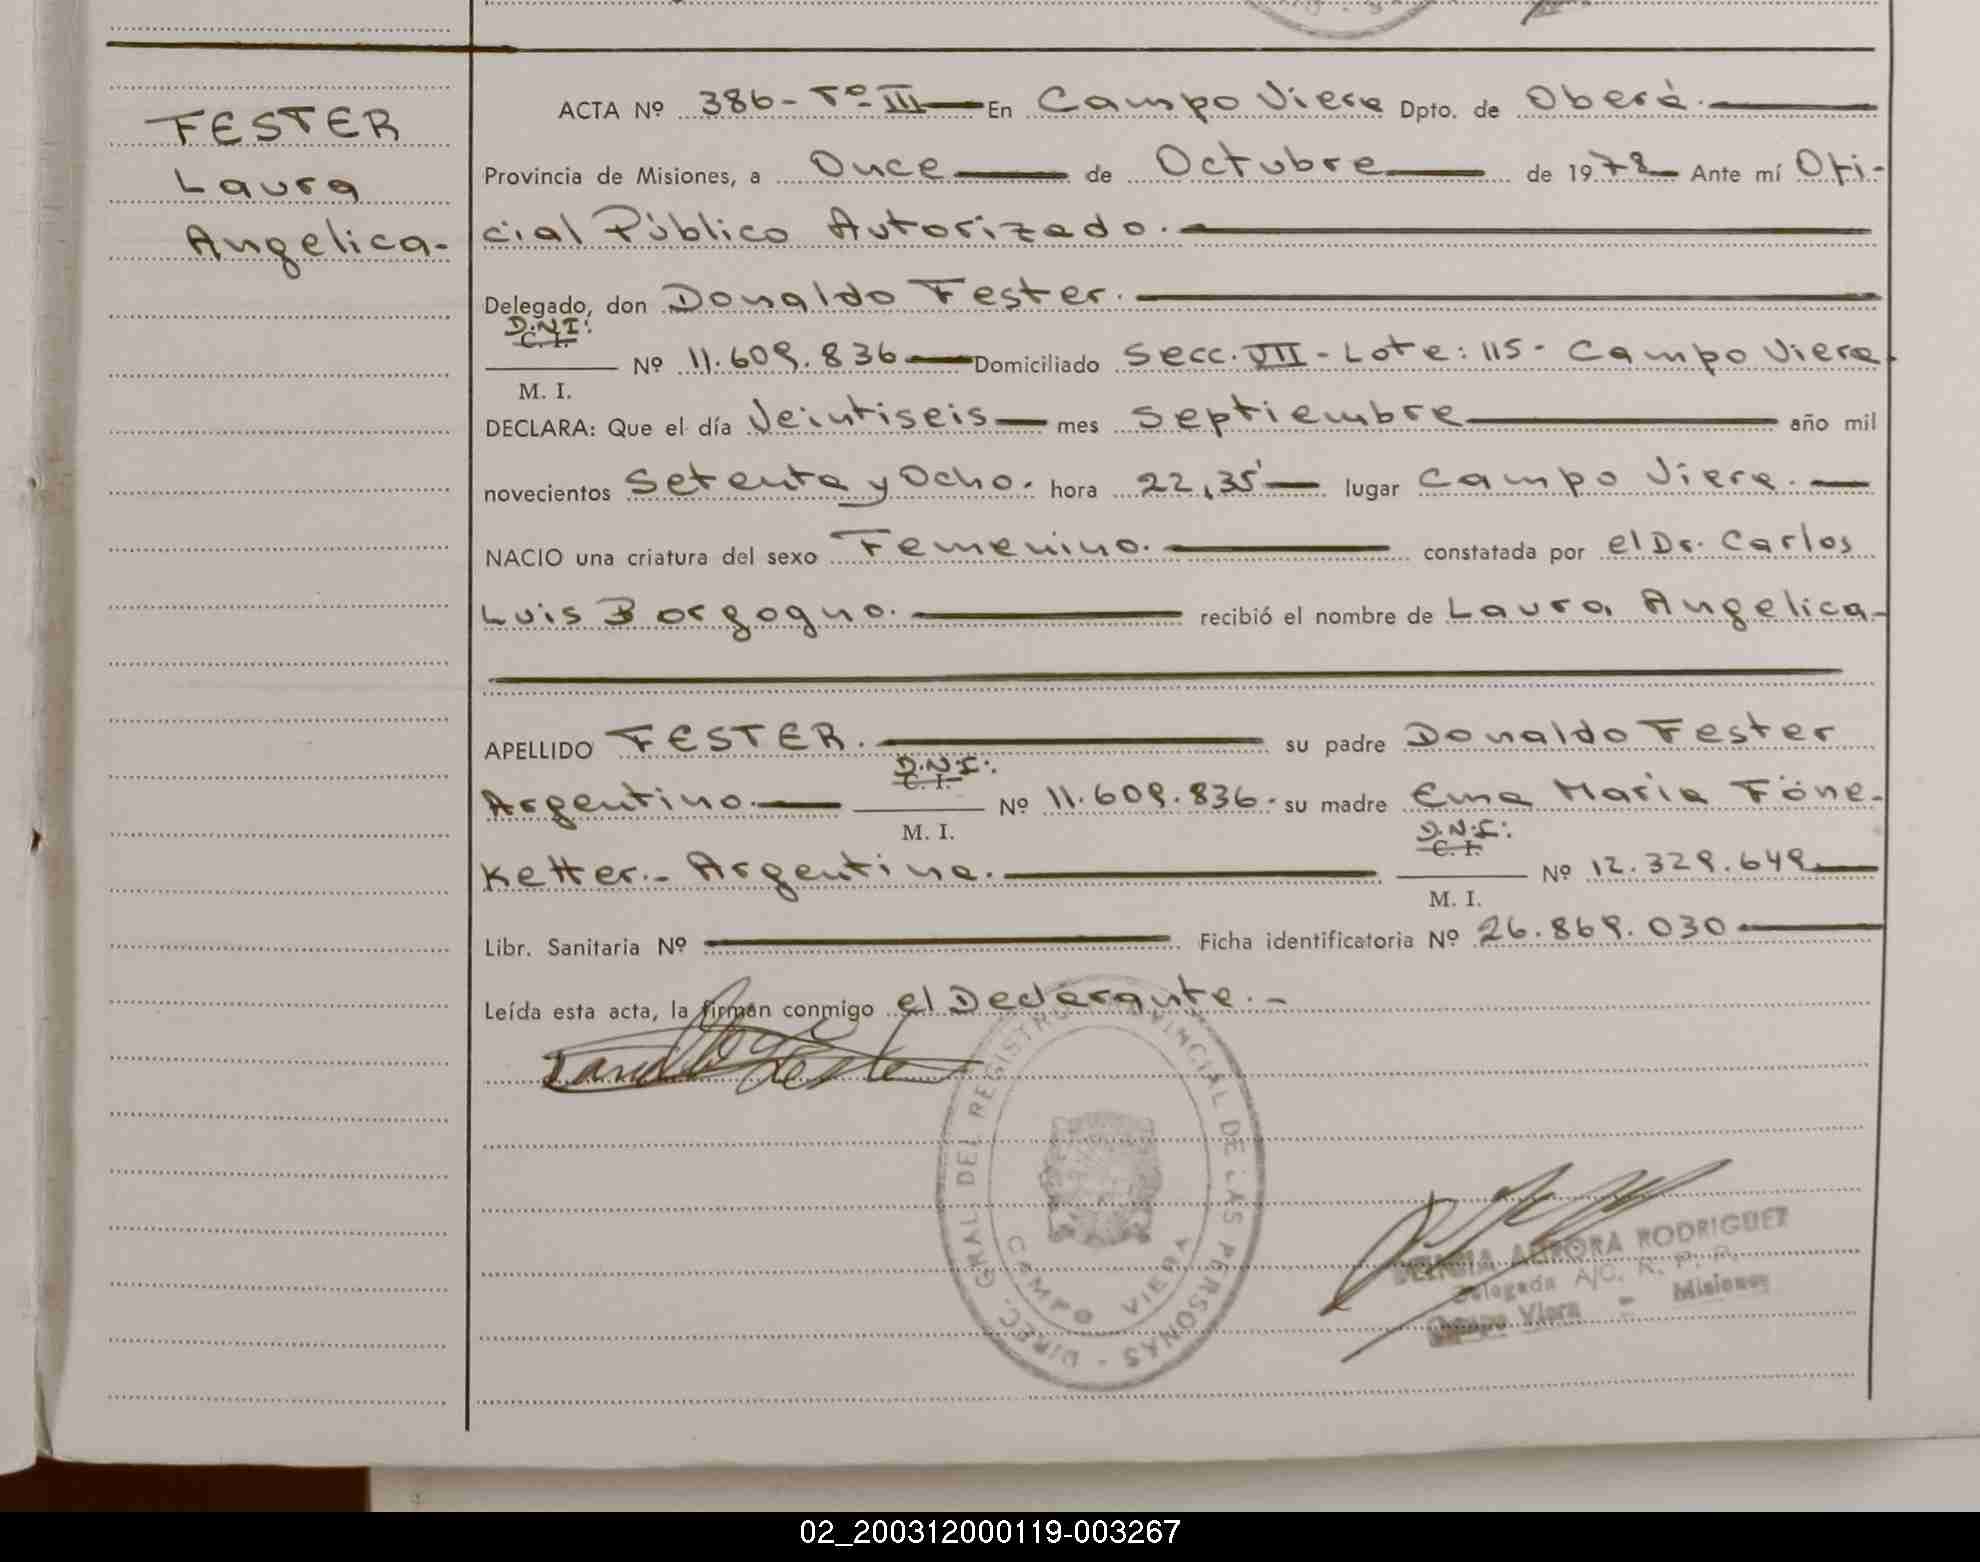 FESTER
Laura
Angelica-
ACTA Nº 386- Tº III — En Campo Viera Dpto. de Oberá.
Provincia de Misiones, a Once de Octubre de 1978 Ante mí Ofi-
cial Público Autorizado.
Delegado, don Donaldo Fester.
D.N.I:
C. I.
M. I.
Nº 11.609.836 Domiciliado Secc. VII - Lote: 115 - Campo Viera.
DECLARA: Que el día Veintiseis mes Septiembre año mil
novecientos Setenta y Ocho. hora 22,35' lugar Campo Viera.
NACIO una criatura del sexo Femenino. constatada por el Dr. Carlos
Luis Borgogno. recibió el nombre de Laura Angelica-
APELLIDO FESTER. su padre Donaldo Fester
D.N.I:
C. I.
M. I.
Argentino. Nº 11.609.836. su madre Ema Maria Föne-
D.N.I:
C. I.
M. I.
Ketter.- Argentina. Nº 12.329.649
Libr. Sanitaria Nº Ficha identificatoria Nº 26.869.030
Leída esta acta, la firman conmigo el Declarante.-
DIREC. GRAL. DEL REGISTRO PROVINCIAL DE LAS PERSONAS -
CAMPO VIERA
AURORA RODRIGUEZ
Delegada A/C. R. P. P.
Campo Viera - Misiones
02_200312000119-003267